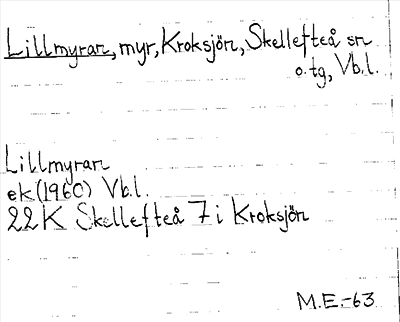 Lillmyran, myr, Kroksjön, Skellefteå sn
o. tg, Vb.l.
Lillmyran
ek (1960) Vb.l.
22K Skellefteå 7 i Kroksjön
M.E.-63